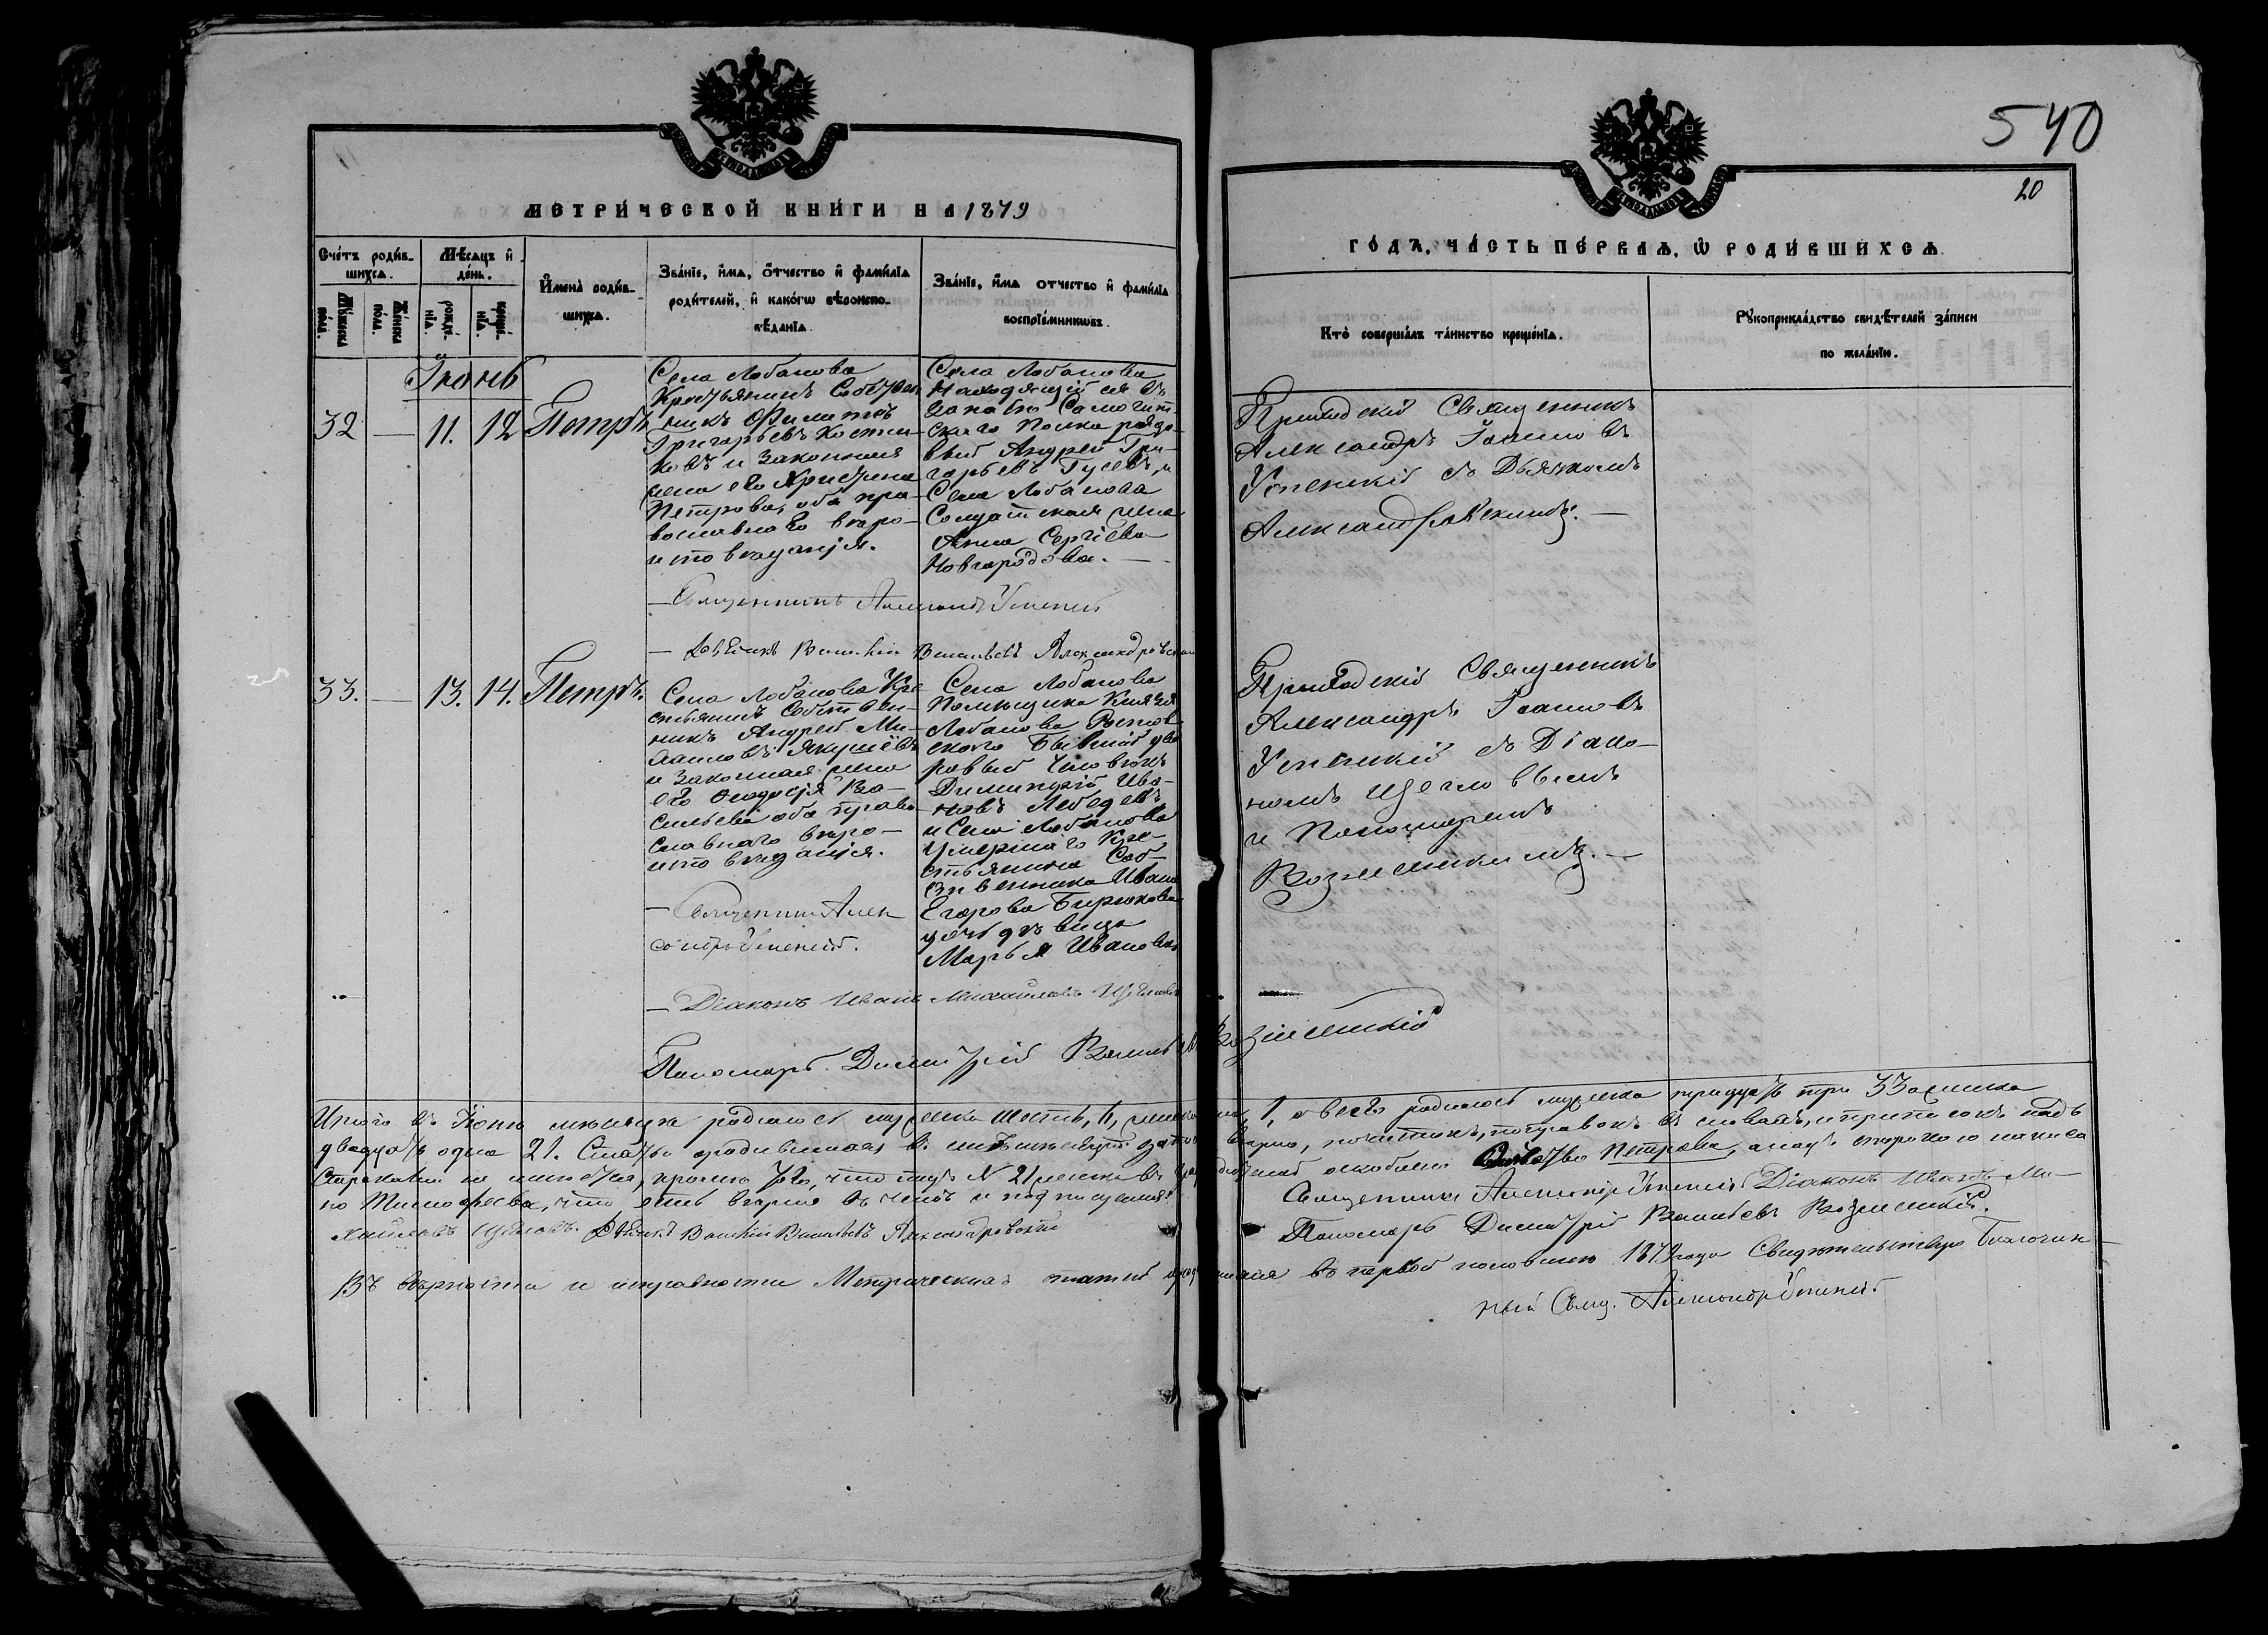 540
20
МЕТРИЧЕСКОЙ КНИГИ НА 1879
ГОДЪ, ЧАСТЬ ПЕРВАЯ, Ѡ РОДИВШИХСЯ.
Счетъ родив-
шихся.
Мужеска пола.
Женска пола.
Мѣсяцъ и
день.
рожде-
нія.
креще-
нія.
Имена родив-
шихся.
Званіе, имя, отчество и фамилія
родителей, и какогѡ вѣроиспо-
вѣданія.
Званіе, имя отчество и фамилія
воспріемниковъ.
Кто совершалъ таинство крещенія.
Рукоприкладство свидѣтелей записи
по желанію.
Іюнь
32
—
11.
12
Петръ
Села Лобанова
Крестьянинъ Собствен
никъ Филиппъ
Григорьевъ Кости-
ковъ и законная
жена его Христина
Петрова, оба пра-
вославнаго вѣро-
исповѣданія.
Села Лобанова
Находящійся въ
Самогит-
скаго Полка рядо-
вый Андрей Гри-
горьевъ Гусевъ, и
Села Лобанова
Солдатская жена
Анна Сергіева
Новгородова. —
Приходскій Священникъ
Александръ Іоанновъ
Успенскій съ Дьячкомъ
Александровскимъ. —
— Священникъ Александръ Успенскій
— Дьячекъ Василій Васильевъ Александровскій
33.
—
13.
14.
Петръ.
Села Лобанова Кре
стьянинъ Собствен-
никъ Андрей Ми-
хайловъ Якушёвъ
и законная жена
его Ѳеодосія Ва-
сильева оба право
славнаго вѣро-
исповѣданія.
Села Лобанова
Помѣщика Князя
Лобанова Ростов
скаго бывшій дво
ровый человѣкъ
Димитрій Ива-
новъ Лебедевъ
и Села Лобанова
умершаго Кре-
стьянина Соб-
ственника Ивана
Егорова Бирюкова
дочь дѣвица
Марья Иванова
Приходскій Священникъ
Александръ Іоанновъ
Успенскій съ Діако-
номъ Щегловымъ
и Пономаремъ
Вознесенскимъ. —
— Священникъ Алек
сандръ Успенскій.
— Діаконъ Иванъ Михайловъ Щегловъ
Пономарь Димитрій Васильевъ Вознесенскій
Итого въ Іюнѣ мѣсяцѣ родилось мужеска шесть, 6, женска 1, а всего родилось мужеска тридцать три 33 а женска
двадцать одна 21. вѣрно, почистокъ, поправокъ въ словахъ, и приписокъ надъ
строками не имѣется, кромѣ того, что подъ № 21 женска въ отчество Петрова, а надъ строкою написа
но Тимофеева, что есть вѣрно въ чемъ и подписуемся: Священникъ Александръ Успенскій Діаконъ Иванъ Ми-
хайловъ Щегловъ. Дьячекъ Василій Васильевъ Александровскій Пономарь Димитрій Васильевъ Вознесенскій.
Въ вѣрности и исправности Метрическихъ статей въ первой половинѣ 1879 года Свидѣтельствую Благочин-
ный Свящ. Александръ Успенскій.